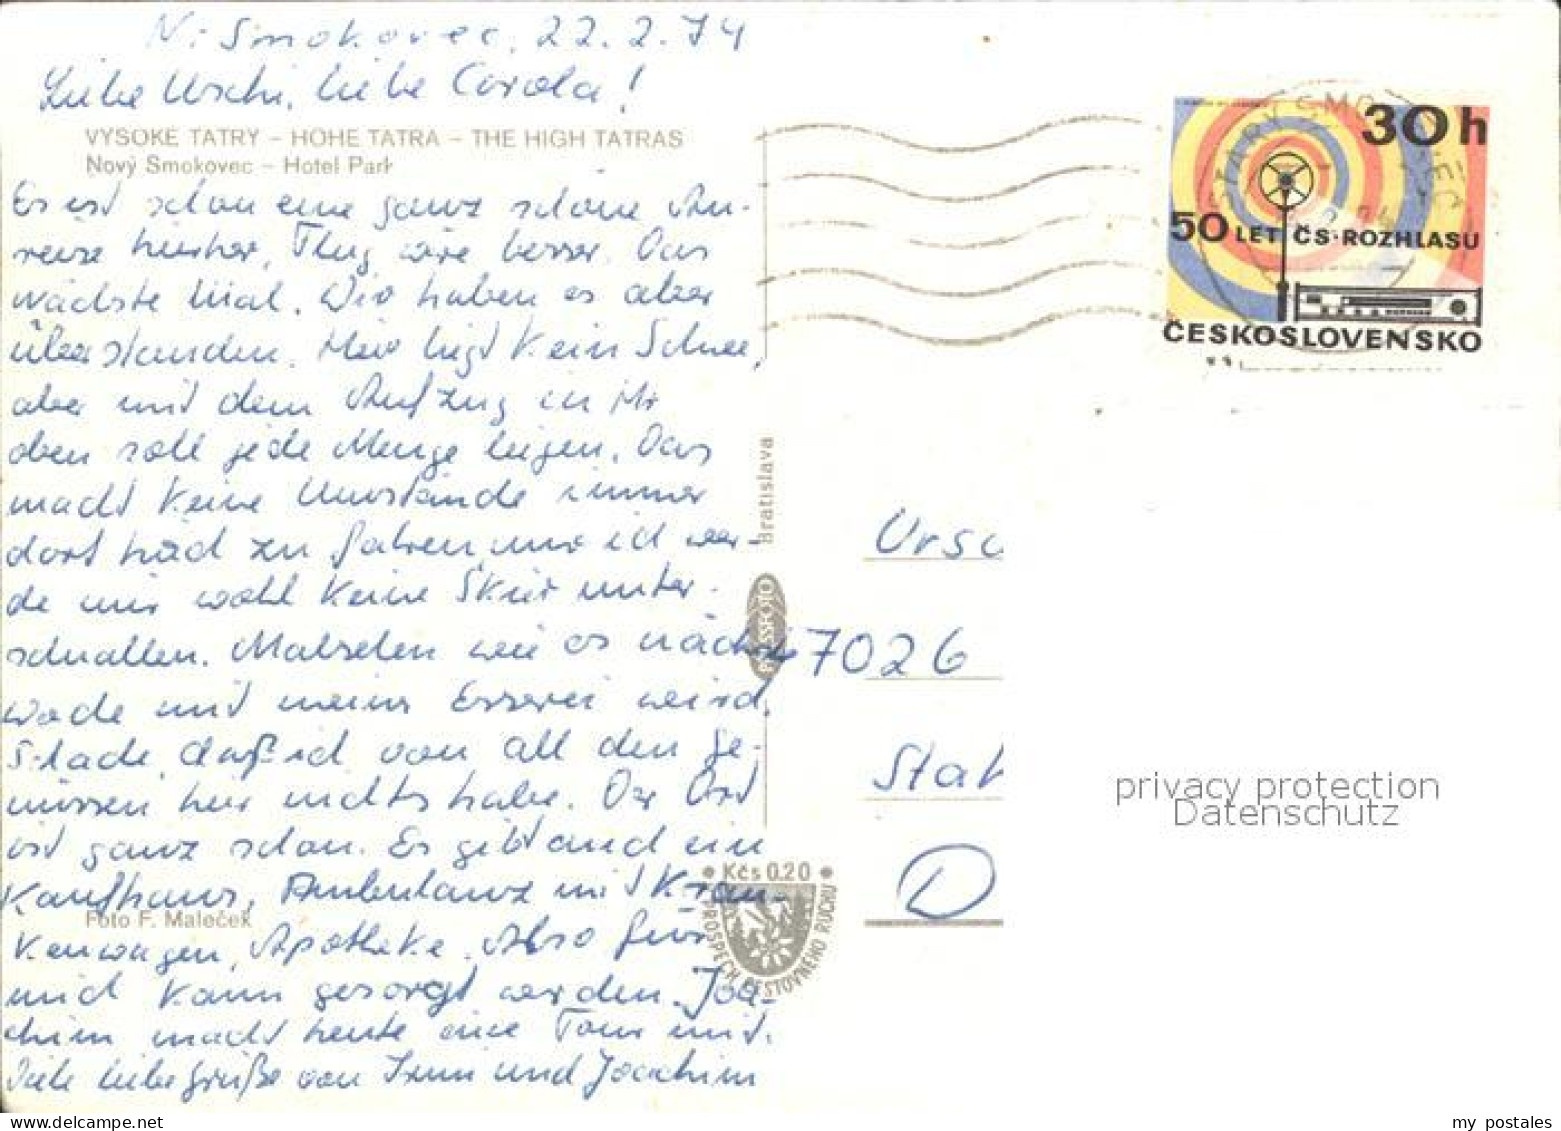 N. Smokovec, 22.2.74
Liebe Uschi, liebe Carola!
VYSOKÉ TATRY – HOHE TATRA – THE HIGH TATRAS
Nový Smokovec – Hotel Park
Es ist schon eine ganz schöne An-
reise hierher, Flug wäre besser. Das
nächste Mal. Wir haben es aber
überstanden. Hier liegt kein Schnee,
aber mit dem Aufzug in
oben soll jede Menge liegen. Das
macht keine Umstände immer
dort zu fahren, nur ich wer-
de mir wohl keine Skier unter-
schnallen. wie es nächste
mit meiner Esserei wird.
Schade, daß ich von all den Ge-
nüssen hier nichts habe. Der Ort
ist ganz schön. Es gibt auch ein
Kaufhaus, Ambulanz mit Kran-
kenwagen, Apotheke. Also für
mich kann gesorgt werden. Joa-
chim macht heute eine Tour mit.
Viele liebe Grüße von Irem und Joachim
Foto F. Maleček
Bratislava
PRESSFOTO
Kčs 0.20
PROSPĚCH CESTOVNÉHO RUCHU
STARÝ SMOKOVEC
30 h
50 LET ČS·ROZHLASU
ČESKOSLOVENSKO
Ursu
7026
Stah
D
privacy protection
Datenschutz
my postales